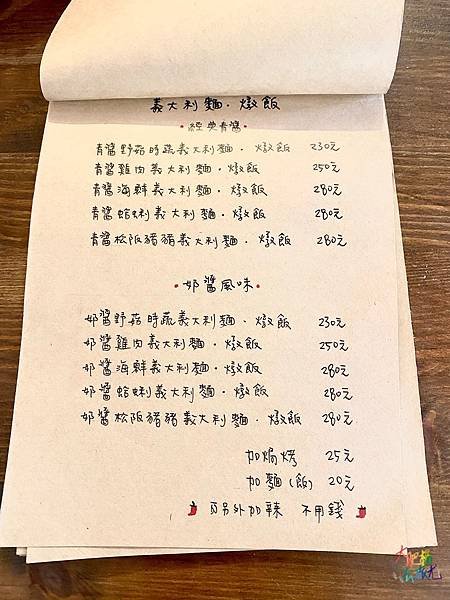 義大利麵．燉飯
•經典青醬•
青醬野菇時蔬義大利麵．燉飯 230元
青醬雞肉義大利麵．燉飯 250元
青醬海鮮義大利麵．燉飯 280元
青醬蛤蜊義大利麵．燉飯 280元
青醬松阪豬豬義大利麵．燉飯 280元
•奶醬風味•
奶醬野菇時蔬義大利麵．燉飯 230元
奶醬雞肉義大利麵．燉飯 250元
奶醬海鮮義大利麵．燉飯 280元
奶醬蛤蜊義大利麵．燉飯 280元
奶醬松阪豬豬義大利麵．燉飯 280元
加焗烤 25元
加麵(飯) 20元
另外加辣 不用錢